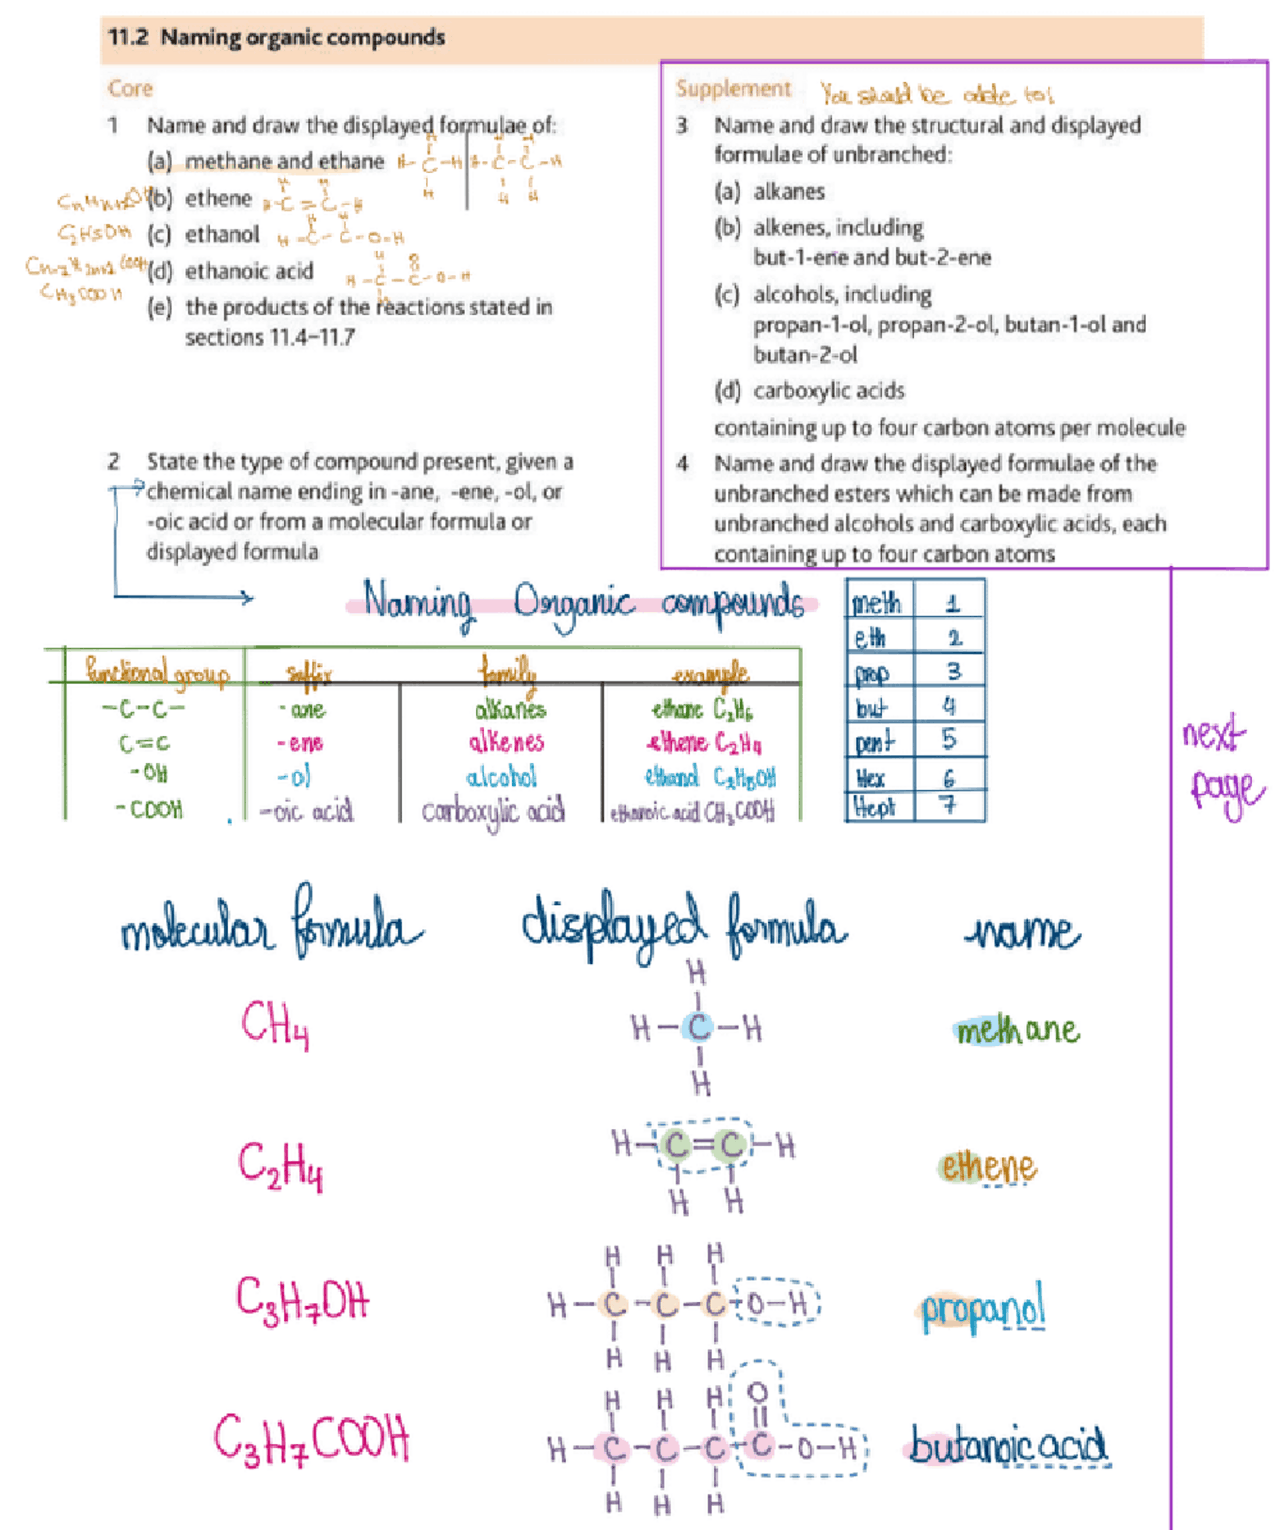 11.2 Naming organic compounds
Core
1 Name and draw the displayed formulae of:
(a) methane and ethane
(b) ethene
(c) ethanol
C₂H₅OH
(d) ethanoic acid
CH₃COOH
(e) the products of the reactions stated in
sections 11.4–11.7
2 State the type of compound present, given a
chemical name ending in -ane, -ene, -ol, or
-oic acid or from a molecular formula or
displayed formula
Supplement You should be able to:
3 Name and draw the structural and displayed
formulae of unbranched:
(a) alkanes
(b) alkenes, including
but-1-ene and but-2-ene
(c) alcohols, including
propan-1-ol, propan-2-ol, butan-1-ol and
butan-2-ol
(d) carboxylic acids
containing up to four carbon atoms per molecule
4 Name and draw the displayed formulae of the
unbranched esters which can be made from
unbranched alcohols and carboxylic acids, each
containing up to four carbon atoms
Naming Organic compounds
functional group suffix family example
-C-C- -ane alkanes ethane C₂H₆
C=C -ene alkenes ethene C₂H₄
-OH -ol alcohol ethanol C₂H₅OH
-COOH -oic acid carboxylic acid ethanoic acid CH₃COOH
meth 1
eth 2
prop 3
but 4
pent 5
Hex 6
Hept 7
next
page
molecular formula displayed formula name
H
CH₄ H-C-H methane
H
C₂H₄ H-C=C-H ethene
H H
H H H
C₃H₇OH H-C-C-C-O-H propanol
H H H
H H H O
C₃H₇COOH H-C-C-C-C-O-H butanoic acid
H H H